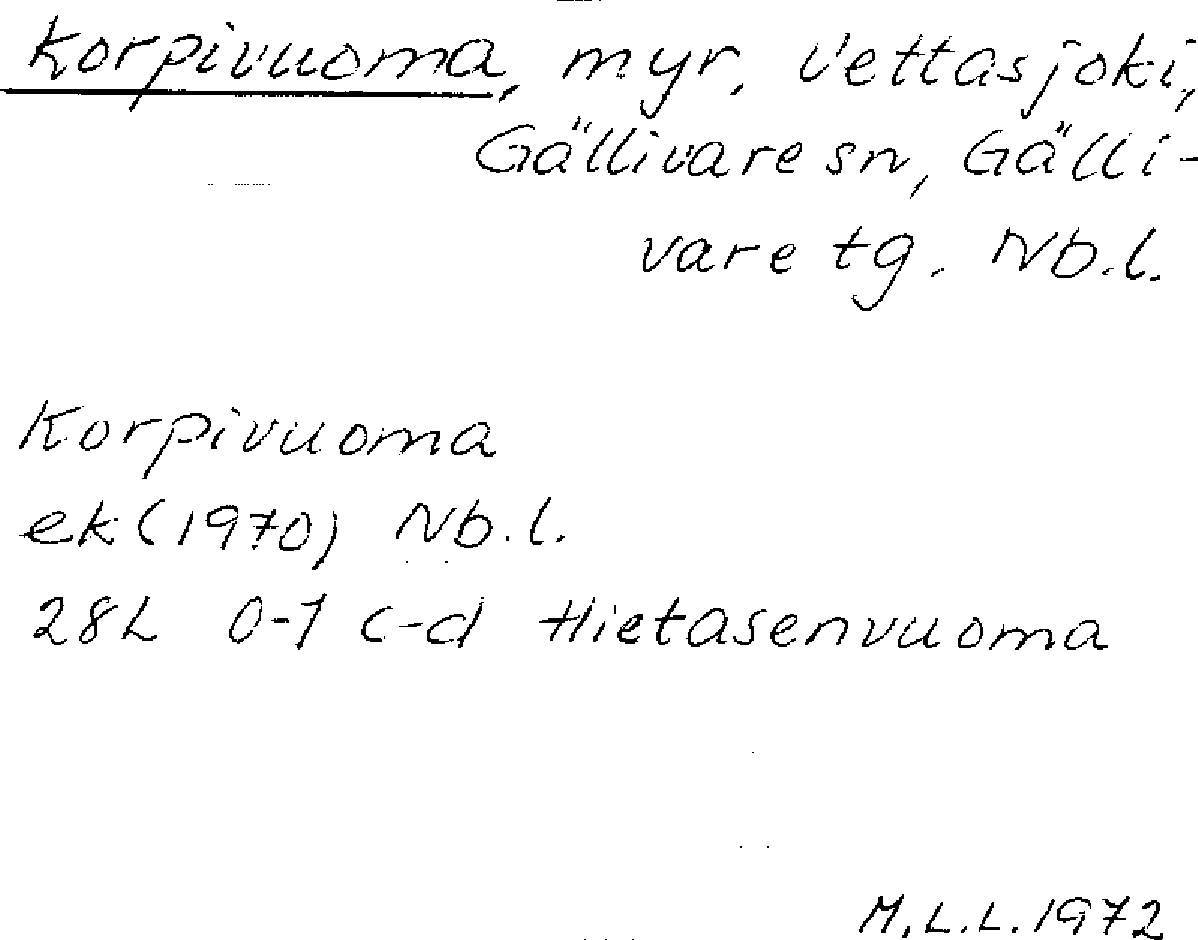 Korpivuoma, myr, Vettasjoki,
Gällivare sn, Gälli-
vare tg. Nb.l.
Korpivuoma
ek (1970) Nb.l.
28L 0-1 c-d Hietasenvuoma
M.L.L. 1972